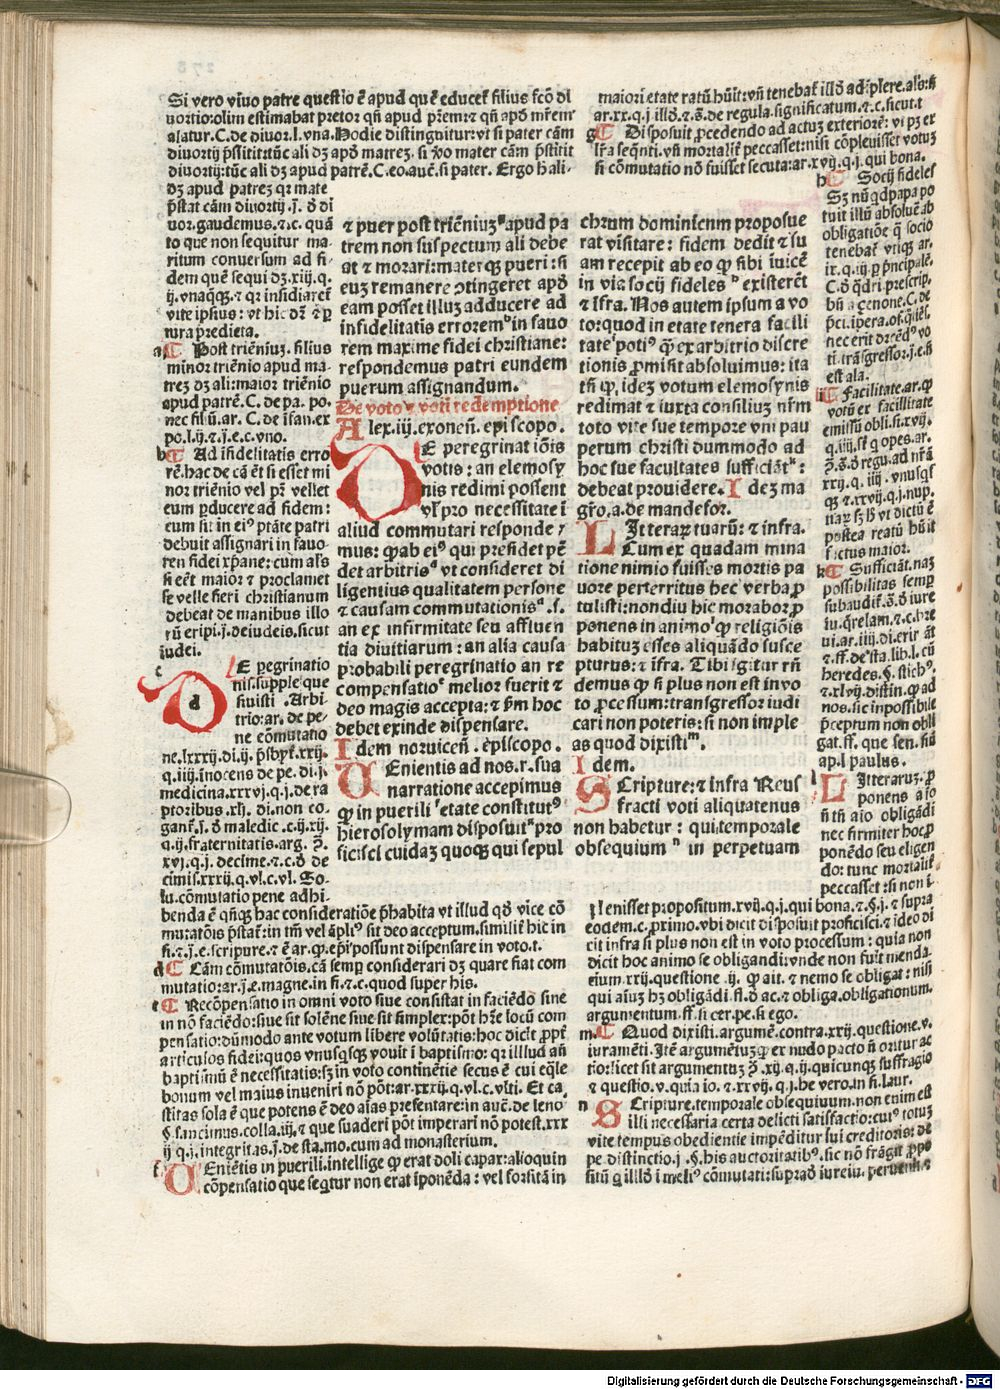 Si vero viuo patre questio ē apud quē educet᷑ filius fcō di
uortio:olim estimabat pretor qn̄ apud pr̄em:⁊ qn̄ apd mr̄em
alatur.C.de diuor.l.vna.Hodie distinguitur:vt si pater cām
diuortij p̄stitit:tūc ali dꝫ apd matreꝫ. si v̓o mater cām p̄stitit
diuortij:tūc ali dꝫ apud patrē.C.eo.auc̄.si pater. Ergo h ali-
dꝫ apud patreꝫ qꝛ mate
p̄stat cām diuortij.j̄. d̄ di
uor.gaudemus.⁊.c. quā
to que non sequitur ma-
ritum conuersum ad fi-
dem quē sequi dꝫ.xiij.q.
ij.vnaqꝫqꝫ.⁊ qꝛ insidiaret᷑
vite ipsius: vt hic dꝫ ⁊ ꝑ
iura predicta.
a¶ Post trienniuꝫ. filius
minor triēnio apud ma-
treꝫ dꝫ ali:maior triēnio
apud patrē.C. de pa. po.
nec filiū.ar. C. de ifan.ex
po.l.ij.⁊ j̄.e.c.vno.
b¶ Ad īfidelitatis erro
rē.hac de cā ēt si esset mi
noꝛ triēnio vel pr̄ vellet
eum ꝑducere ad fidem:
eum sic in ei⁹ ptāte patri
debuit assignari in fauo-
ren fidei xp̄ane:cum al̓s
si eēt maior ⁊ proclamet
se velle fieri christianum
debeat de manibus illo
rū eripi.j̄.de iudeis.sicut
iudei.
c
DE pegrinatio
nis.supple que
fiuisti .Arbi-
trio:ar. de pe-
ne cōmutatio
ne.lxxxij.di.ij. p̄sbyt᷑.xxij.
q.iiij.inocens de pe. di.j.
medicina.xxxvj.q.j.de ra
ptoribus.xli. di.non co-
gant᷑.j̄. d̄ maledic .c.ij.xij.
q.ij.fraternitatis.arg. 9̄.
xvj.q.j. decime.⁊.c.d̄ de
cimis.xxxij.q.vl.c.vl. So-
lu.cōmutatio pene adhi-
benda ē qn̄qꝫ hac consideratiōe p̄habita vt illud qd̓ vice cō
muratōis p̄stat᷑:in tm̄ vel ápli⁹ sit deo acceptum.similit᷑ hic in
fi.⁊.j̄.e.scripture.⁊ ē ar.ꝙ.ep̄i possunt dispensare in voto.t.
d¶ Cām cōmutatōis.cā semꝑ considerari dꝫ quare fiat com
mutatio:ar.j̄.e.magne.in fi.⁊.c.quod super his.
e¶ Recōpensatio in omni voto siue consistat in faciēdo sine
in nō faciēdo:siue sit solēne siue sit simplex:pōt hr̄e locū com
pensatio:dūmodo ante votum libere volūtatis:hoc dicit ꝓpt᷑
articulos fidei:quos vnusqꝫ vouit ī baptismo: qꝛ illud añ
baptismū ē necessitatis:sꝫ in voto continētie secus ē cui eq̄le
bonum vel maius inueniri nō pōt:ar.xxxij.q.vl.c.vlti. Et ca-
stitas sola ē que potens ē deo aīas presentare:in auc̄.de leno-
§.sancimus.colla.iij.⁊ que suaderi pōt imperari nō potest.xxx
ij q.j.integritas.j̄.de sta.mo.cum ad monasterium.
f VEniētis in puerili.intellige ꝙ erat doli capax:alioquin
cōpensatio que seq̄tur non erat iponēda: vel forsitā in
⁊ puer post triēniuꝫ apud pa
trem non suspectum ali debe
at ⁊ morari:materqꝫ pueri: si
euꝫ remanere ꝯtingeret apd̓
eam posset illuꝫ adducere ad
infidelitatis errorem b in fauo
rem maxime fidei christiane:
respondemus patri eundem
puerum assignandum.
De voto ⁊ voti redemptione
Alex.iij.exoneñ. episcopo.
DE peregrinat iōis
votis : an elemosy
nis redimi possent
vl̓ pro necessitate ī
aliud commutari responde
mus: ꝙ ab ei⁹ qui presidet pē
det arbitris d vt consideret di
ligentius qualitatem persone
⁊ causam commutationis .s.
an ex infirmitate seu affluen
tia diuitiarum : an alia causa
probabili peregrinatio an re
compensatio e melior fuerit ⁊
deo magis accepta: ⁊ p̄m hoc
debet exinde dispensare.
Idem noruiceñ . episcopo.
VEnientis ad nos.r.sua
narratione accepimus
ꝙ in puerili f etate constitut⁹
hierosolymam disposuit g pro
ficisci cuidaꝫ quoqꝫ qui sepul
chrum dominicum proposue
rat visitare: fidem dedit ⁊ su
am recepit ab eo ꝙ sibi inuicē
in via socij fideles h existerēt
⁊ ifra. Nos autem ipsum a vo
to:quod in etate tenera facili
tate i poti⁹ q̄ ex arbitrio discre
tionis ꝓmisit absoluimus: ita
tñ ꝙ idez votum elemosynis
redimat ⁊ iuxta consiliuꝫ nr̄m
toto vite sue tempore vni pau
perum christi dummodo ad
hoc sue facultates sufficiāt k:
debeat prouidere. Idez ma
gr̄o.a.de mandefor.
LItteraꝝ tuarū: ⁊ infra.
Cum ex quadam mina
tione nimio fuisses mortis pa
uore perterritus hec verba ꝓ
tulisti:nondiu hic morabor:ꝓ
ponens in animo l ꝙ religiōis
habituꝫ esses aliquādo susce
pturus: ⁊ ifra. Tibi igitur rñ
demus ꝙ si plus non est in vo
to ꝓcessum: transgressor iudi
cari non poteris: si non imple
as quod dixisti m.
Idem.
SCripture:⁊ infra Reus
fracti voti aliquatenus
non habetur : qui temporale
obsequium n in perpetuam
maiori etate ratū hūit:vñ tenebat᷑ illd̓ adīplere.al̓s:fi
ar.xx.q.j illd̓.⁊.s̄.de regula.significatum.⁊.c.sicut.t
g¶ Disposuit ꝓcedendo ad actuꝫ exteriorē: vt pꝫ ex
lr̄a seq̄nti.vñ mortalit᷑ peccasset:nisi cōpleuisset votuꝫ
si cōmutatio nō fuisset secuta:ar.xvij.q.j.qui bona.
h¶ Socij fideles
Sꝫ nūqd papa po
tuit illū absoluē ab
obligatiōe q̄ socio
tenebat᷑ vtiqꝫ ar.
ix.q.iij.ꝑ p̄ncipalē.
C.d̄ q̄dri prescrip.
bñ a çenone.C.de
p̄ci.ipera.of.q̄ies.
nec erit dicēd⁹ vo
ti trāsgressor.j̄.e.fi
est ala.
i¶ Facilitate.ar.ꝙ
votū ex facillitate
emissū obli.fi.xvij.
q.iiij.si q̄ opes.ar.
9̄.s̄.d̄ regu.ad nr̄ā
xxij.q. iiij . vnusqꝫ
qꝫ ⁊.xxvij.q.j.nup.
tiaꝝ sꝫ h̓ vt dictū ē
postea reatū hūit
fctus maior.
k¶ Sufficiāt.naꝫ
possibilitas semꝑ
subaudit᷑.s̄.d̄ iure
iu.q̄relam.⁊.c.bre
ui.ar.iiij.di.erit āt
⁊.ff.de sta.lib.l.cū
heredes.§.stich⁹.
⁊.xlvij.distin.ꝙ ad
nos.sic inpossibile
p̄ceptum non obli
gat.ff. que sen.fiū
ap.l paulus.
l LItteraruꝫ.ꝓ
ponens a īo
ñ tñ aio obligādi
nec firmiter hoc ꝓ
ponēdo seu eligen
do: tunc mortalit᷑
peccasset :si non i-
plenisset propositum.xvij.q.j.qui bona.⁊.§.j.⁊ supra
eodem.c.proximo.vbi dicit disposuit proficisci.⁊ ideo di
cit infra si plus non est in voto processum : quia non
dicit hoc animo se obligandi:vnde non fuit menda-
cium xxij.questione .ij. ꝙ ait.⁊ nemo se obligat: nisi
qui aīuꝫ hꝫ obligādi fl.d̄ ac.⁊ obliga.obligationum.
argumentum.ff.si cer.pe.si ego.
m¶ Quod dixisti.argumē.contra.xxij.questione.v.
iuramēti.Itē argumētuꝫ ꝙ ex nudo pacto ñ oritur ac
tio:licet sit argumentuꝫ 9̄.xij.q.ij.quicunqꝫ suffragio
⁊ questio.v.quia io.⁊.xxvij.q.j.he vero.in fi.laur.
n SCripture.temporale obsequiuum.non enim est
illi necessaria certa delicti satisfactio:cui⁹ totuꝫ
vite tempus obedientie impēditur sui creditoris: de
pe distinctio.j .§.his auctoritatib⁹.sic nō frāgit ꝓpo
sitū q illd̓ ī meli⁹ cōmutat:supra d̄ iureiu. peruenit.
Digitalisierung gefördert durch die Deutsche Forschungsgemeinschaft - DFG